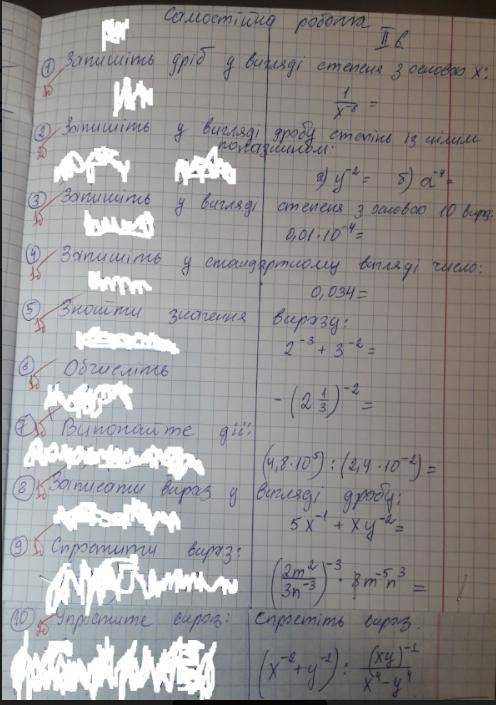 Самостійна робота
ІІ в.
① Запишіть дріб у вигляді степеня з основою х:
1/x⁻⁸ =
② Запишіть у вигляді дробу степінь із цілим
показником:
а) y⁻² = б) a⁻⁴ =
③ Запишіть у вигляді степеня з основою 10 вираз:
0,01·10⁻⁴ =
④ Запишіть у стандартному вигляді число:
0,034 =
⑤ Знайти значення виразу:
2⁻³ + 3⁻² =
⑥ Обчисліть
-(2 1/3)⁻² =
⑦ Виконайте дії:
(4,8·10⁵) : (2,4·10⁻²) =
⑧ Записати вираз у вигляді дробу:
5x⁻¹ + xy⁻² =
⑨ Спростити вираз:
(2m²/3n⁻³)⁻³ · 8m⁻⁵n³ =
⑩ Упростите вираз: спростіть вираз.
(x⁻² + y⁻²) : (xy)⁻¹/x⁴-y⁴